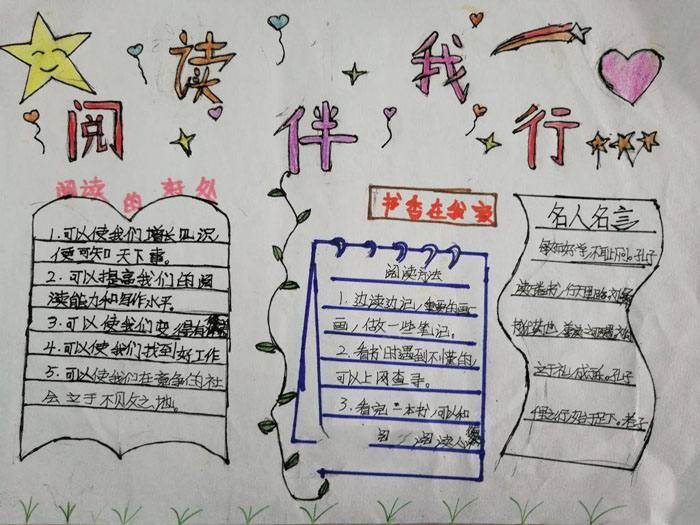 阅读伴我行
阅读的好处
1.可以使我们增长见识,
便可知天下事。
2.可以提高我们的阅
读能力和写作水平。
3.可以使我们变得有
4.可以使我们找到好工作
5.可以使我们在竞争的社
会立于不败之地。
书香在我家
阅读方法
1.边读边记,重要的画一
画,做一些笔记。
2.看书时遇到不懂的,
可以上网查寻。
3.看完一本书,可以和
名人名言
敏而好学,不耻下问。孔子
立于礼,成于乐。孔子
千里之行,始于足下。老子